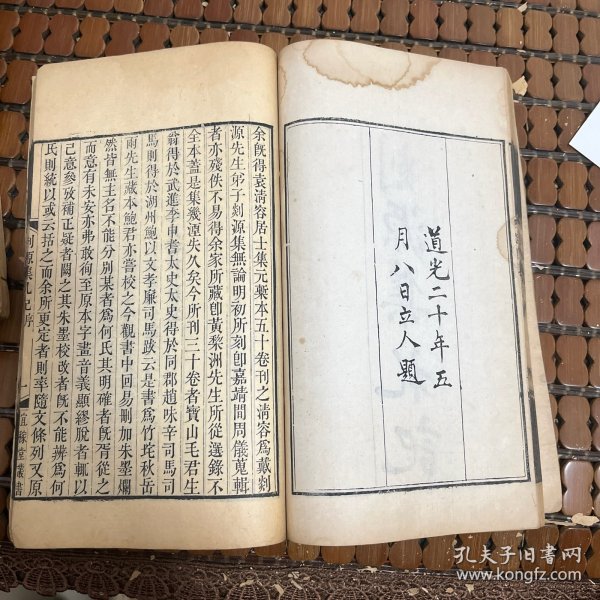 道光二十年五
月八日立人題
余旣得袁淸容居士集元槧本五十卷刊之淸容爲戴剡
源先生弟子剡源集無論明初所刻卽嘉靖間周儀蒐輯
者亦殘佚不易得余家所藏卽黃黎洲先生所從選錄不
全本蓋是集幾湮失久矣今所刊三十卷者寶山毛君生
翁得於武進李申耆太史太史得於同郡趙味辛司馬司
馬則得於湖州鮑以文孝廉司馬跋云是書爲竹垞秋岳
兩先生藏本鮑君亦嘗校之今觀書中回易刪加朱墨爛
然皆無主名不能分别某者爲何氏其明確者旣胥從之
而意有未安亦弗敢徇至原本字畫音義顯繆脫者輒以
己意參攷補正疑者闕之其朱墨校改者旣不能辨爲何
氏則統以或云括之而余所更定者則率隨文條列又原
剡源集札記序
一
宜稼堂叢書
孔夫子旧書网
www.kongfz.com